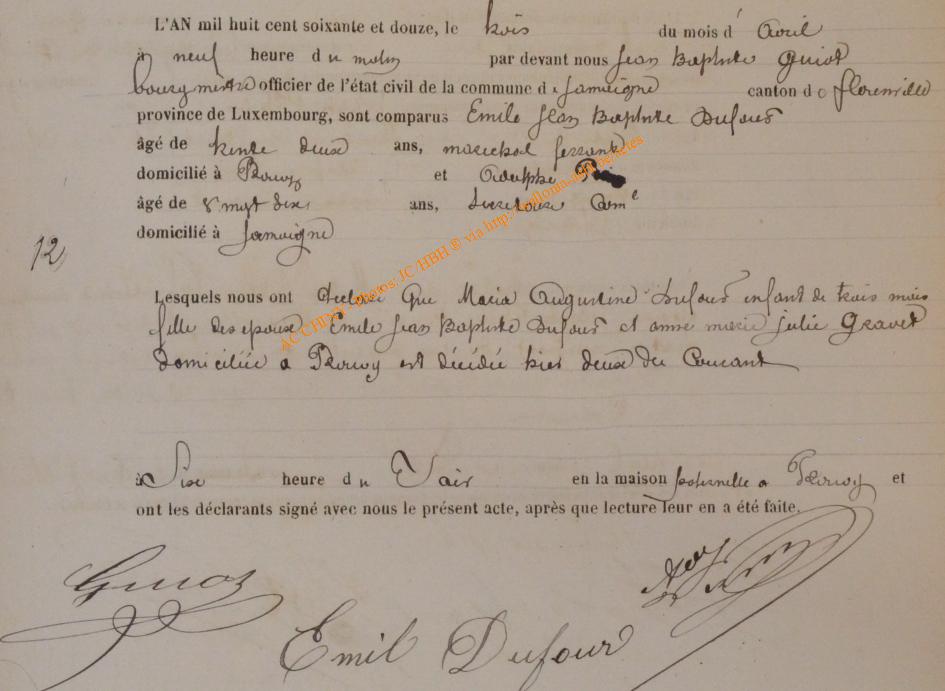 L'AN mil huit cent soixante et douze, le trois du mois d' Avril
à neuf heure du matin par devant nous Jean Baptiste Guiot
bourgmestre officier de l'état civil de la commune de Jamoigne canton de florenville
province de Luxembourg, sont comparus Emile Jean Baptiste Dufour
âgé de trente deux ans, marechal ferrant
domicilié à Prouvy et Adolphe
âgé de vingt dix ans, Secretaire Comᵉ
domicilié à Jamoigne
12
Lesquels nous ont declaré Que Maria Augustine Dufour enfant de trois mois
fille des epoux Emile Jean Baptiste Dufour et anne marie julie Gravet
domiciliée a Prouvy est décédée hier deux du Courant
à Six heure du Soir en la maison paternelle a Prouvy et
ont les déclarants signé avec nous le présent acte, après que lecture leur en a été faite.
Guiot
Emil Dufour
ACCHDNX - Photos: JC/HBH ® via http://